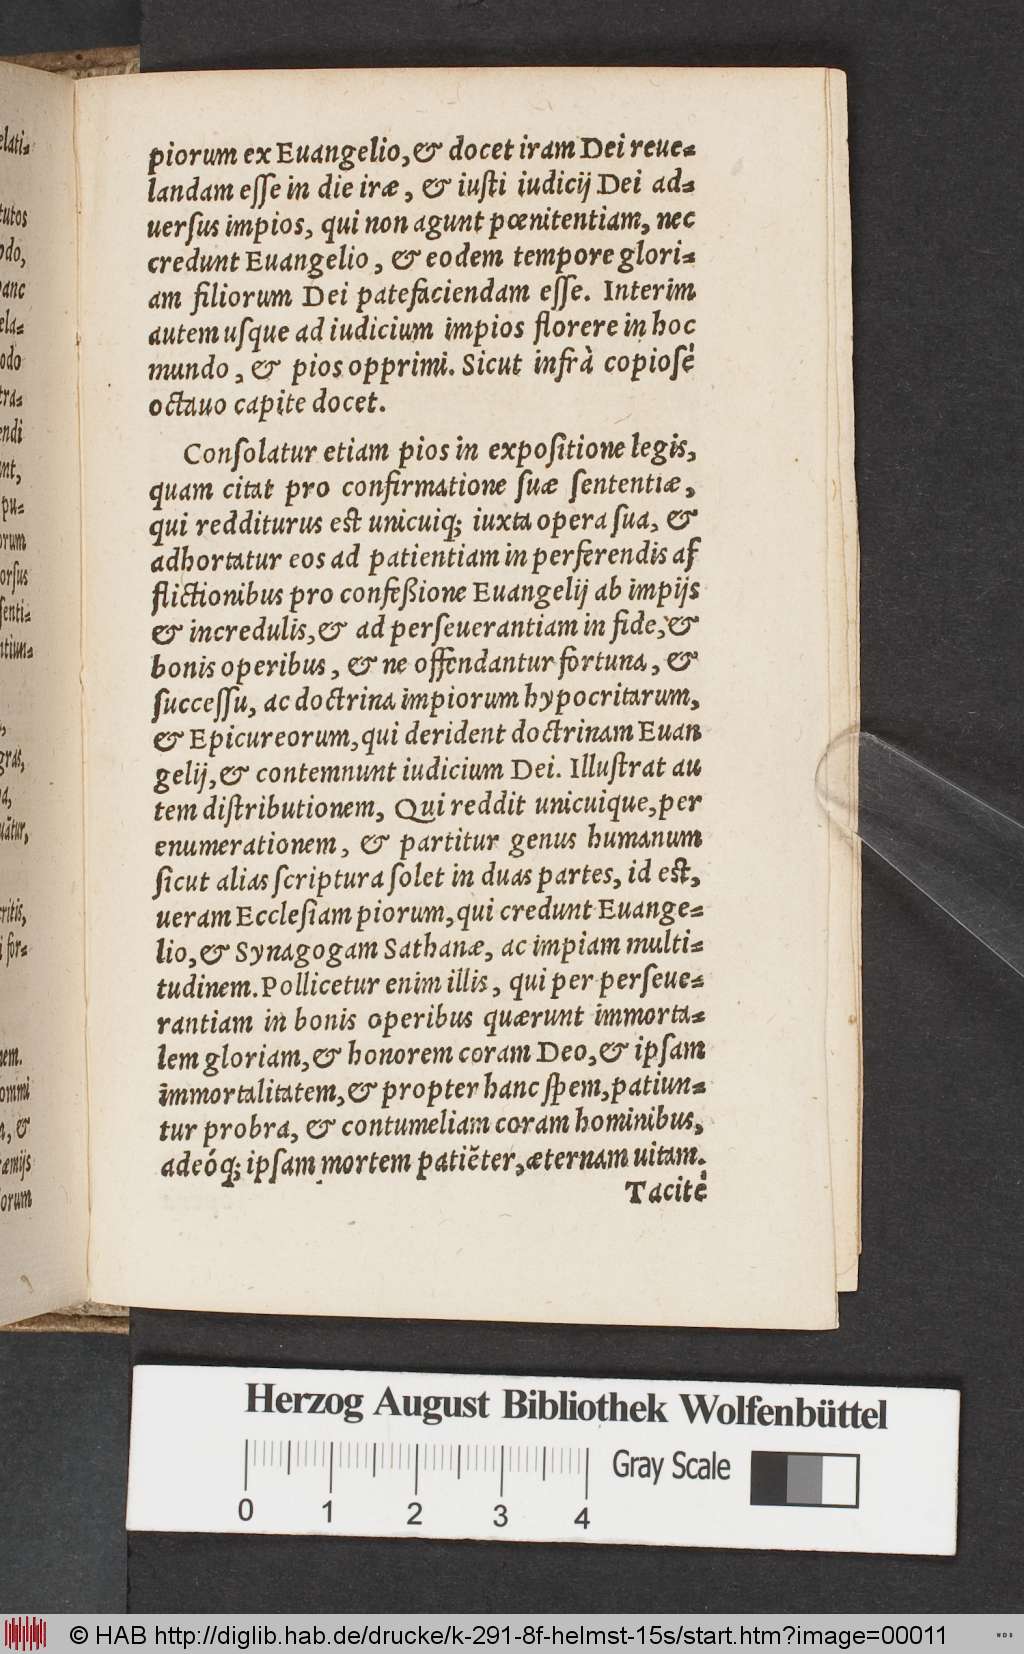 piorum ex Euangelio, & docet iram Dei reue-
landam esse in die iræ, & iusti iudicij Dei ad-
uersus impios, qui non agunt pœnitentiam, nec
credunt Euangelio, & eodem tempore glori-
am filiorum Dei patefaciendam esse. Interim
autem usque ad iudicium impios florere in hoc
mundo, & pios opprimi. Sicut infrà copiosè
octauo capite docet.
Consolatur etiam pios in expositione legis,
quam citat pro confirmatione suæ sententiæ,
qui redditurus est unicuiq; iuxta opera sua, &
adhortatur eos ad patientiam in perferendis af
flictionibus pro confeßione Euangelij ab impijs
& incredulis, & ad perseuerantiam in fide, &
bonis operibus, & ne offendantur fortuna, &
successu, ac doctrina impiorum hypocritarum,
& Epicureorum, qui derident doctrinam Euan
gelij, & contemnunt iudicium Dei. Illustrat au
tem distributionem, Qui reddit unicuique, per
enumerationem, & partitur genus humanum
sicut alias scriptura solet in duas partes, id est,
ueram Ecclesiam piorum, qui credunt Euange-
lio, & Synagogam Sathanæ, ac impiam multi-
tudinem. Pollicetur enim illis, qui per perseue-
rantiam in bonis operibus quærunt immorta-
lem gloriam, & honorem coram Deo, & ipsam
immortalitatem, & propter hanc spem, patiun-
tur probra, & contumeliam coram hominibus,
adeóq; ipsam mortem patiēter, æternam uitam.
Tacitè
Herzog August Bibliothek Wolfenbüttel
Gray Scale
0 1 2 3 4
© HAB http://diglib.hab.de/drucke/k-291-8f-helmst-15s/start.htm?image=00011